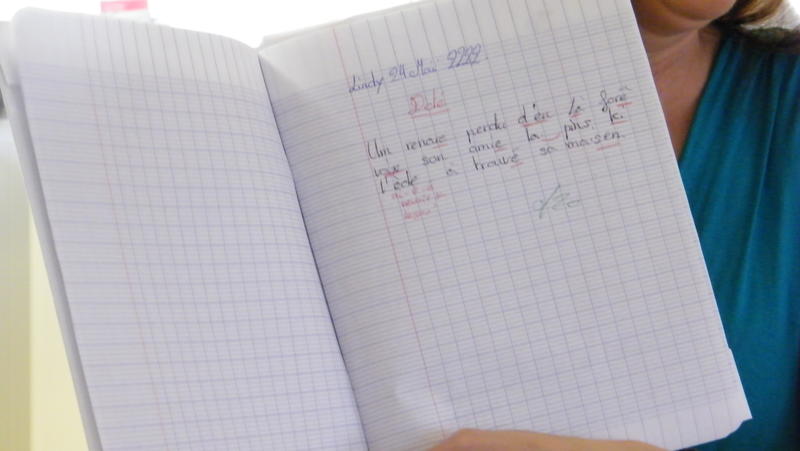 Lindy 24 Mai 2222
Dolé
Um renare perdu d'en la forê
voye son amie la pins k.
L'ède à trouvé sa maisen.